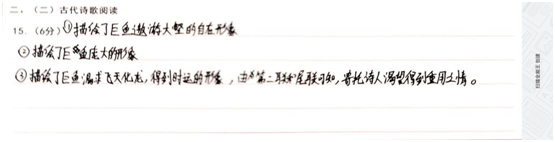 二、（二）古代诗歌阅读
15.（6分）①描绘了巨鱼遨游大壑的自在形象
②描绘了巨鱼庞大的形象
③描绘了巨鱼渴求飞天化龙，得到时运的形象，由第二联和尾联可知，寄托诗人渴望得到重用之情。
扫描全能王 创建